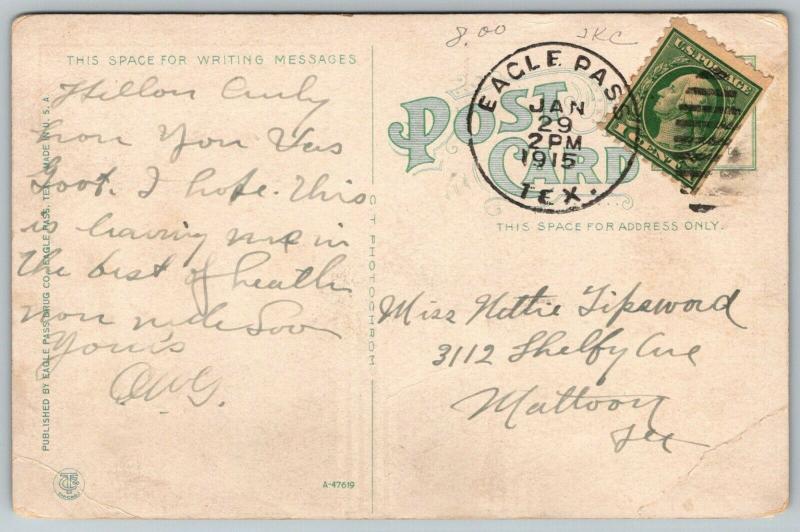 8.00 JKC
THIS SPACE FOR WRITING MESSAGES
POST CARD
EAGLE PASS
JAN
29
2 PM
1915
TEX.
U.S. POSTAGE
1 CENT 1
THIS SPACE FOR ADDRESS ONLY.
Hillon Curly
hou You Vas
Goot. I hope. this
is leaving me in
the best of health
now
Yours
OWG.
Miss Nettie Tipsword
3112 Shelby Ave
Mattoon
Ill
PUBLISHED BY EAGLE PASS DRUG CO., EAGLE PASS, TEX. MADE IN U. S. A.
C T PHOTOCHROM
A-47619